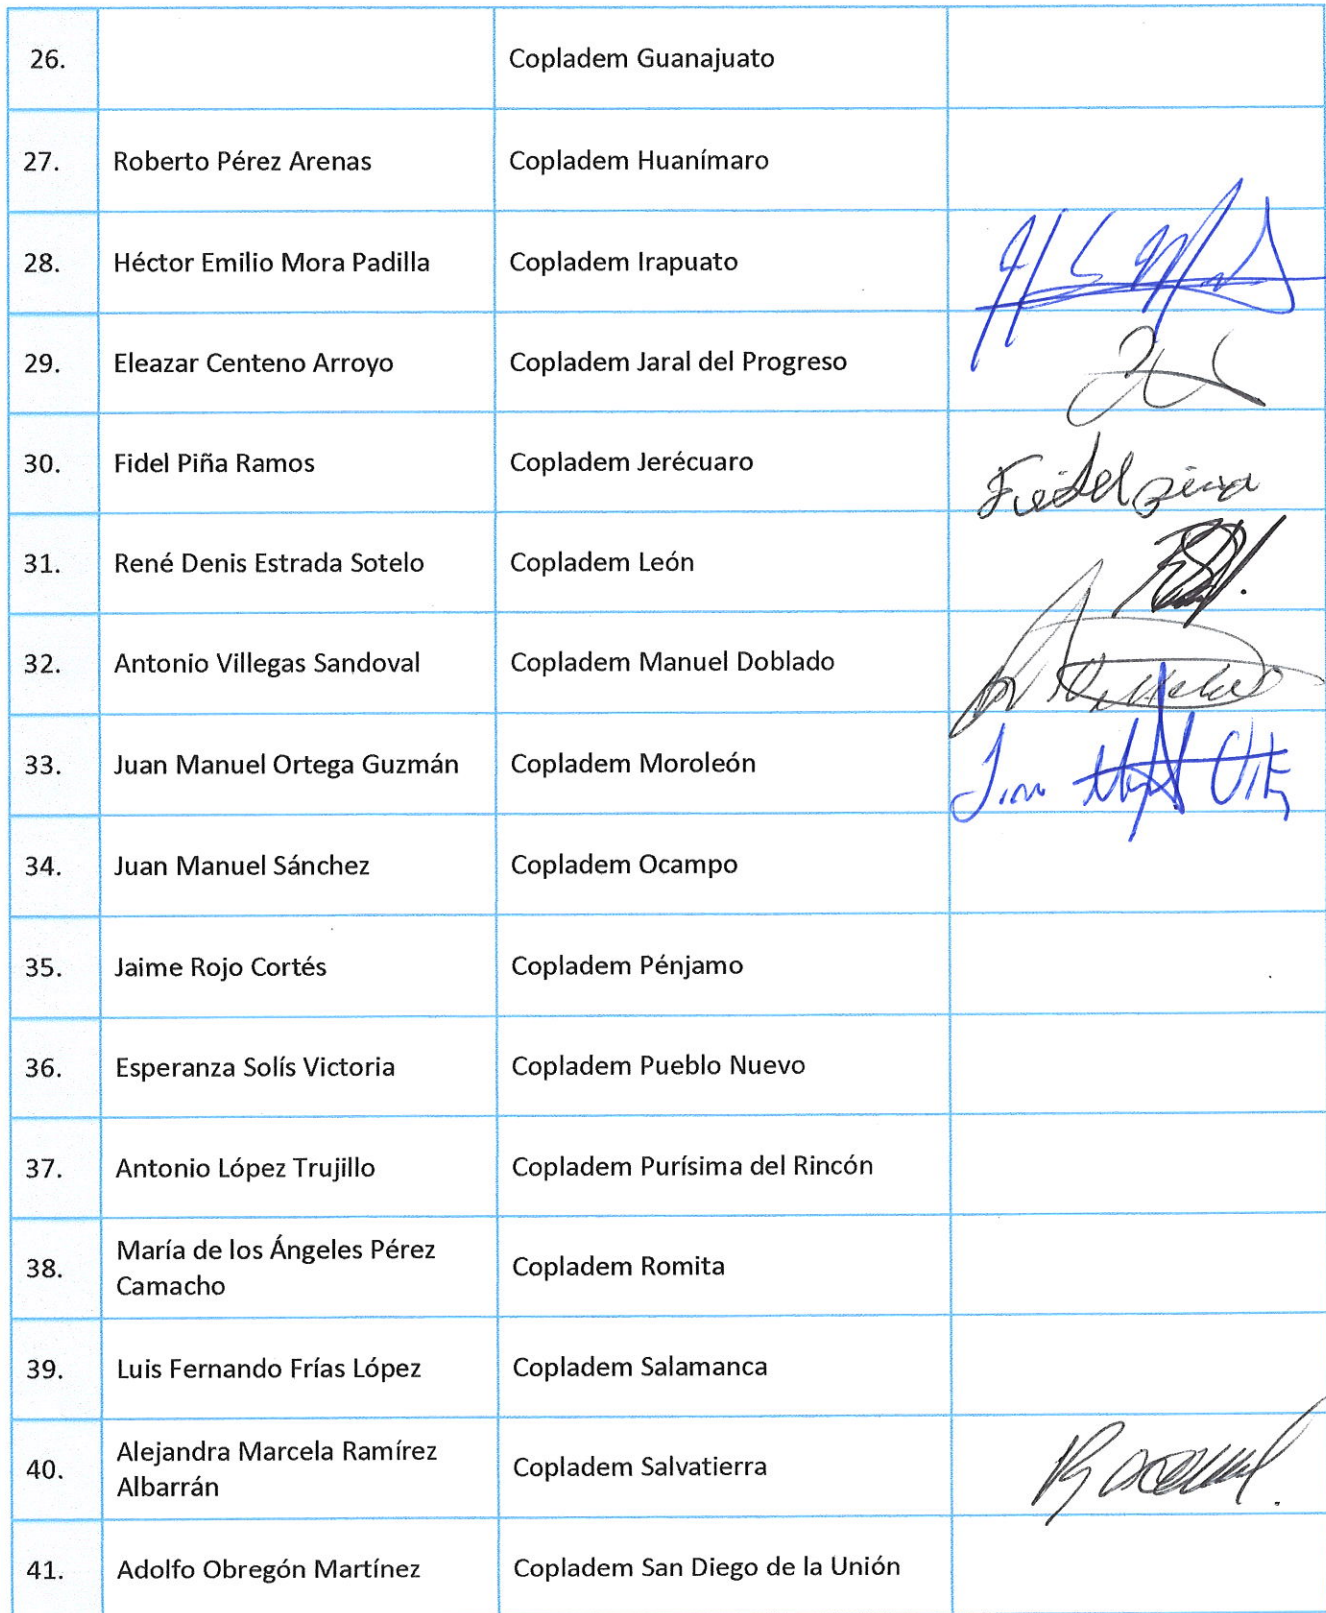 26. Copladem Guanajuato
27. Roberto Pérez Arenas Copladem Huanímaro
28. Héctor Emilio Mora Padilla Copladem Irapuato
29. Eleazar Centeno Arroyo Copladem Jaral del Progreso
30. Fidel Piña Ramos Copladem Jerécuaro Fidel piña
31. René Denis Estrada Sotelo Copladem León
32. Antonio Villegas Sandoval Copladem Manuel Doblado
33. Juan Manuel Ortega Guzmán Copladem Moroleón
34. Juan Manuel Sánchez Copladem Ocampo
35. Jaime Rojo Cortés Copladem Pénjamo
36. Esperanza Solís Victoria Copladem Pueblo Nuevo
37. Antonio López Trujillo Copladem Purísima del Rincón
38. María de los Ángeles Pérez
Camacho Copladem Romita
39. Luis Fernando Frías López Copladem Salamanca
40. Alejandra Marcela Ramírez
Albarrán Copladem Salvatierra
41. Adolfo Obregón Martínez Copladem San Diego de la Unión